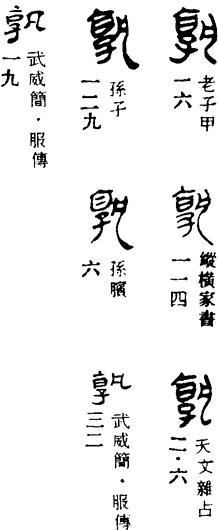 孰
老子甲
一六
孰
縱橫家書
一一四
孰
天文雜占
二·六
孰
孫子
一二九
孰
孫臏
六
孰
武威簡·服傳
三二
孰
武威簡·服傳
一九